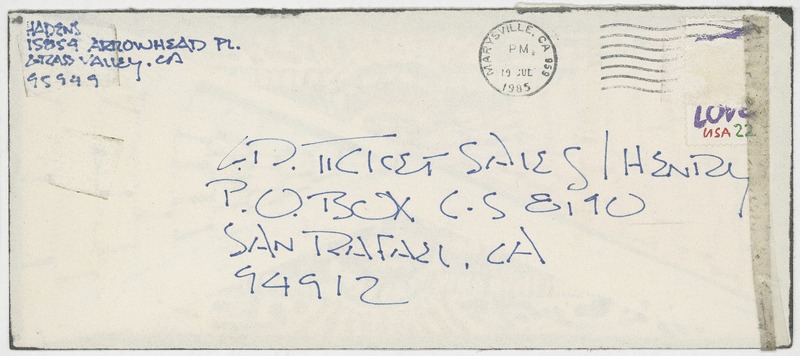 HADENS
15859 ARROWHEAD PL.
GRASS VALLEY, CA
95949
MARYSVILLE, CA 959
PM
19 JUL
1985
LOVE
USA 22
G.D. TICKET SALES / HENRY
P.O. BOX C-S 8190
SAN RAFAEL, CA
94912